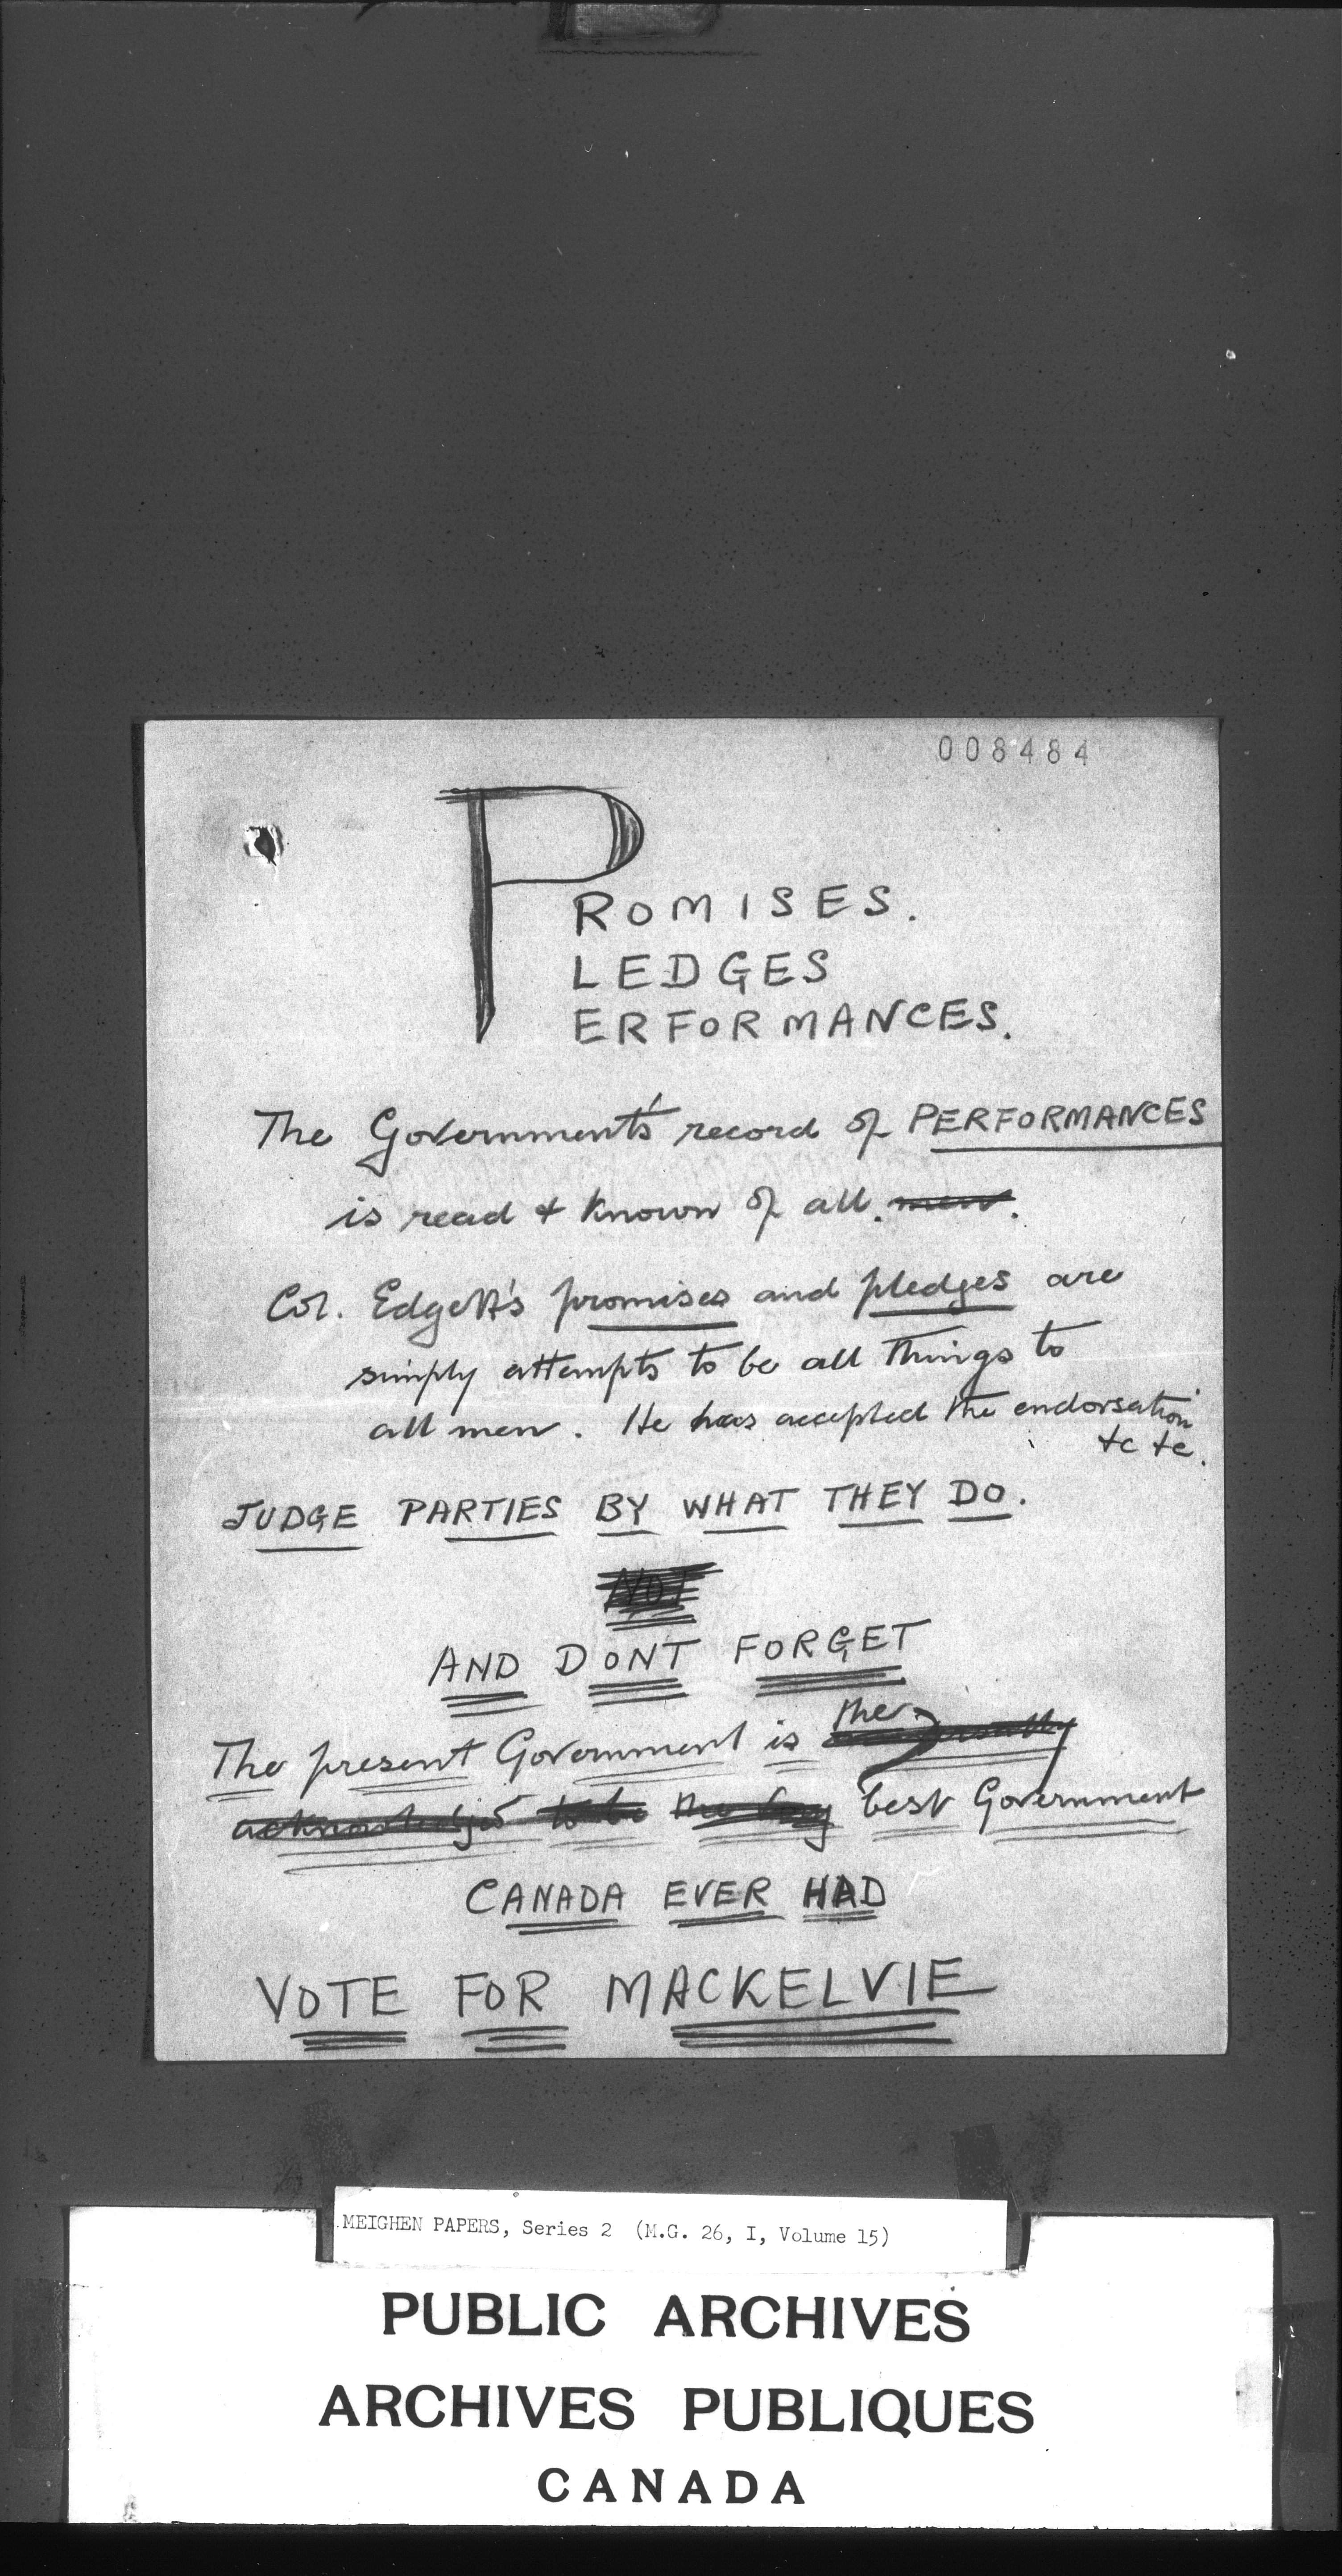 008484
PROMISES.
LEDGES
ERFORMANCES.
The Government's record of PERFORMANCES
is read & known of all. men.
Col. Edgett's promises and pledges are
simply attempts to be all things to
all men. He has accepted the endorsation
&c &c.
JUDGE PARTIES BY WHAT THEY DO.
NOT
AND DONT FORGET
the
The present Government is
acknowledged to be the best Government
CANADA EVER HAD
VOTE FOR MACKELVIE
MEIGHEN PAPERS, Series 2 (M.G. 26, I, Volume 15)
PUBLIC ARCHIVES
ARCHIVES PUBLIQUES
CANADA